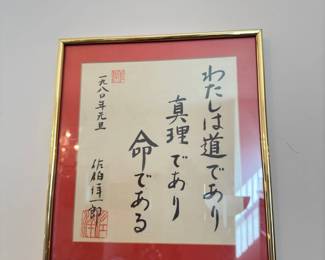 わたしは道であり
真理であり
命である
一九八〇年元旦
佐伯洋一郎